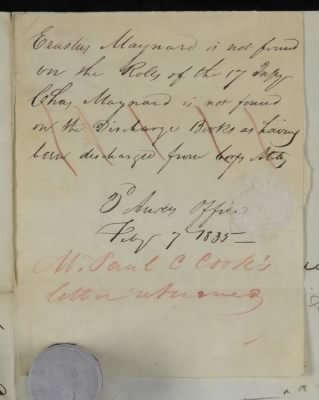 Erastus Maynard is not found
on the Roles of the 17 Infy
Chas Maynard is not found
on the Discharge Books as having
been discharged from Corps
3d Aud's Office
Feby 7 1835
Mr. Paul C Cook's
letter returned